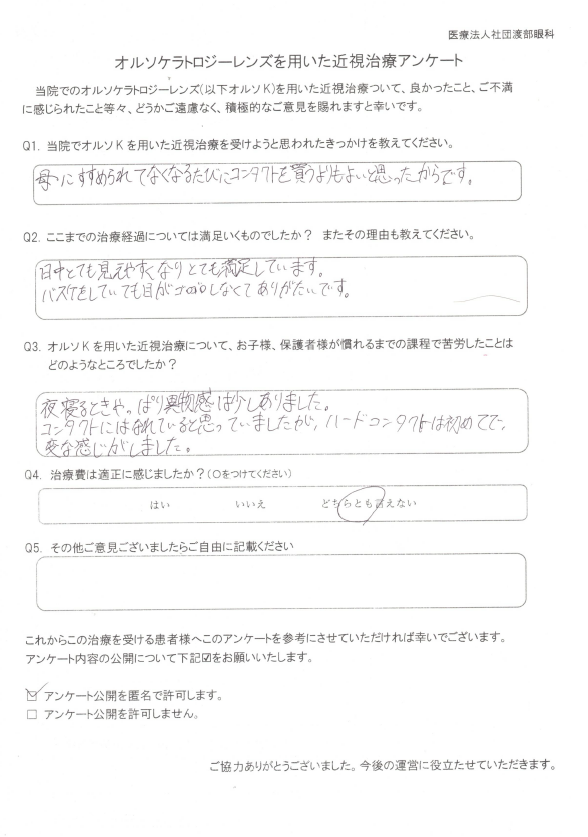 医療法人社団渡部眼科
オルソケラトロジーレンズを用いた近視治療アンケート
当院でのオルソケラトロジーレンズ(以下オルソK)を用いた近視治療ついて、良かったこと、ご不満
に感じられたこと等々、どうかご遠慮なく、積極的なご意見を賜れますと幸いです。
Q1. 当院でオルソKを用いた近視治療を受けようと思われたきっかけを教えてください。
母にすすめられてなくなるたびにコンタクトを買うよりもよいと思ったからです。
Q2. ここまでの治療経過については満足いくものでしたか? またその理由も教えてください。
日中とても見えやすくなりとても満足しています。
バスケをしていても目がゴロゴロしなくてありがたいです。
Q3. オルソKを用いた近視治療について、お子様、保護者様が慣れるまでの課程で苦労したことは
どのようなところでしたか?
夜寝るときやっぱり異物感は少しありました。
コンタクトにはなれていると思っていましたが、ハードコンタクトは初めてで、
変な感じがしました。
Q4. 治療費は適正に感じましたか?(○をつけてください)
はい いいえ どちらとも言えない
Q5. その他ご意見ございましたらご自由に記載ください
これからこの治療を受ける患者様へこのアンケートを参考にさせていただければ幸いでございます。
アンケート内容の公開について下記☑をお願いいたします。
☑ アンケート公開を匿名で許可します。
□ アンケート公開を許可しません。
ご協力ありがとうございました。今後の運営に役立たせていただきます。